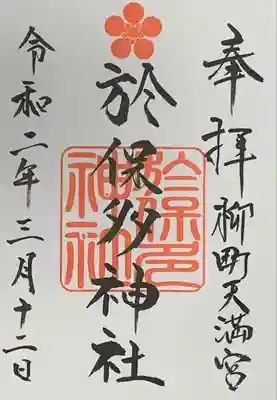 奉拝 柳町天満宮
於保多神社
令和二年三月十二日
於保多
神社